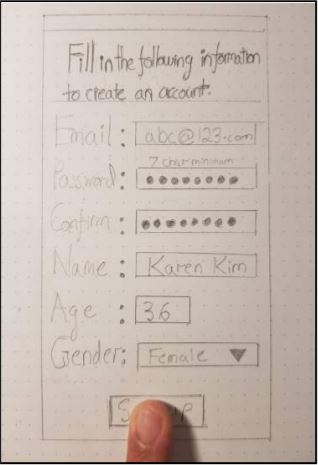 Fill in the following information
to create an account.
Email: abc@123.com
7 char minimum
Password:
Confirm:
Name: Karen Kim
Age: 36
Gender: Female